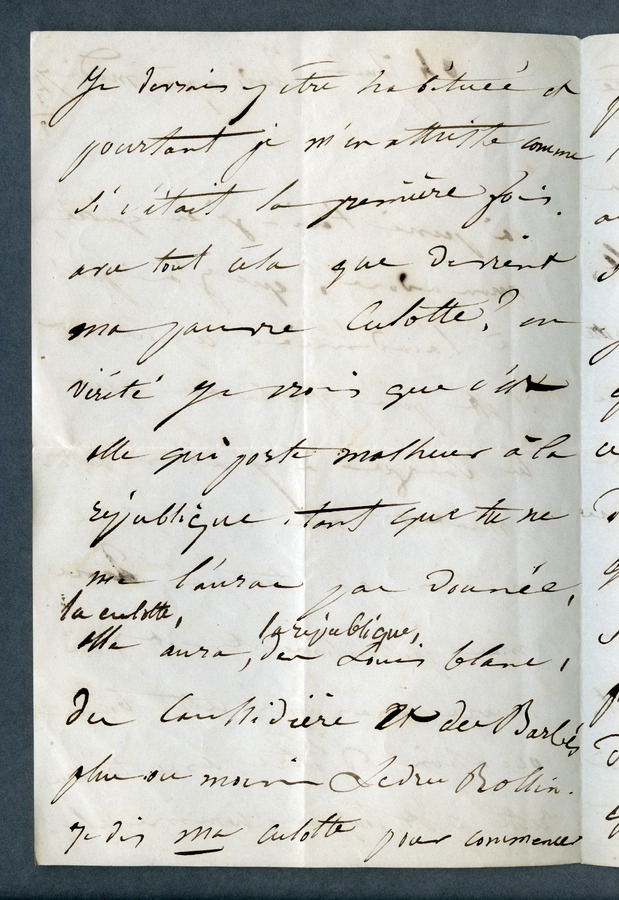 Je devrais y être habituée et
pourtant je m'en attriste comme
si c'était la première fois.
avec tout cela que devient
ma pauvre culotte? en
vérité je crois que c'est
elle qui porte malheur à la
république. tant que tu ne
me l'auras pas donnée,
la culotte, la république,
elle aura, des Louis blanc,
des Caussidière et des Barbès
plus ou moins Ledru Rollin.
Je dis ma culotte pour commencer